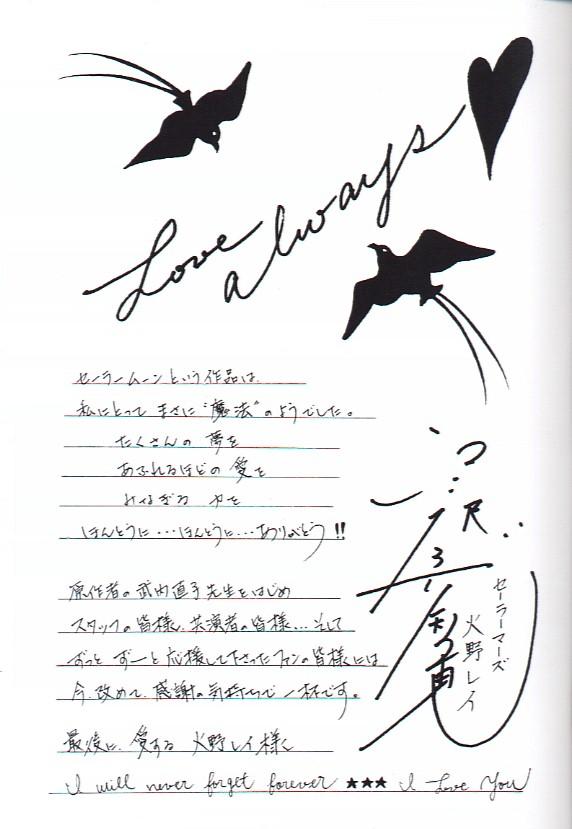 Love always
セーラームーンという作品は
私にとって まさに"魔法"のようでした。
たくさんの 夢を
あふれるほどの 愛を
みなぎる 力を
ほんとうに…ほんとうに…ありがとう!!
原作者の武内直子先生をはじめ
スタッフの皆様、共演者の皆様…そして
ずっと ずーと応援して下さったファンの皆様には
今、改めて、感謝の気持ちで一杯です。
最後に、愛する 火野レイ様へ
I will never forget forever ★★★ I Love You
セーラーマーズ
火野レイ